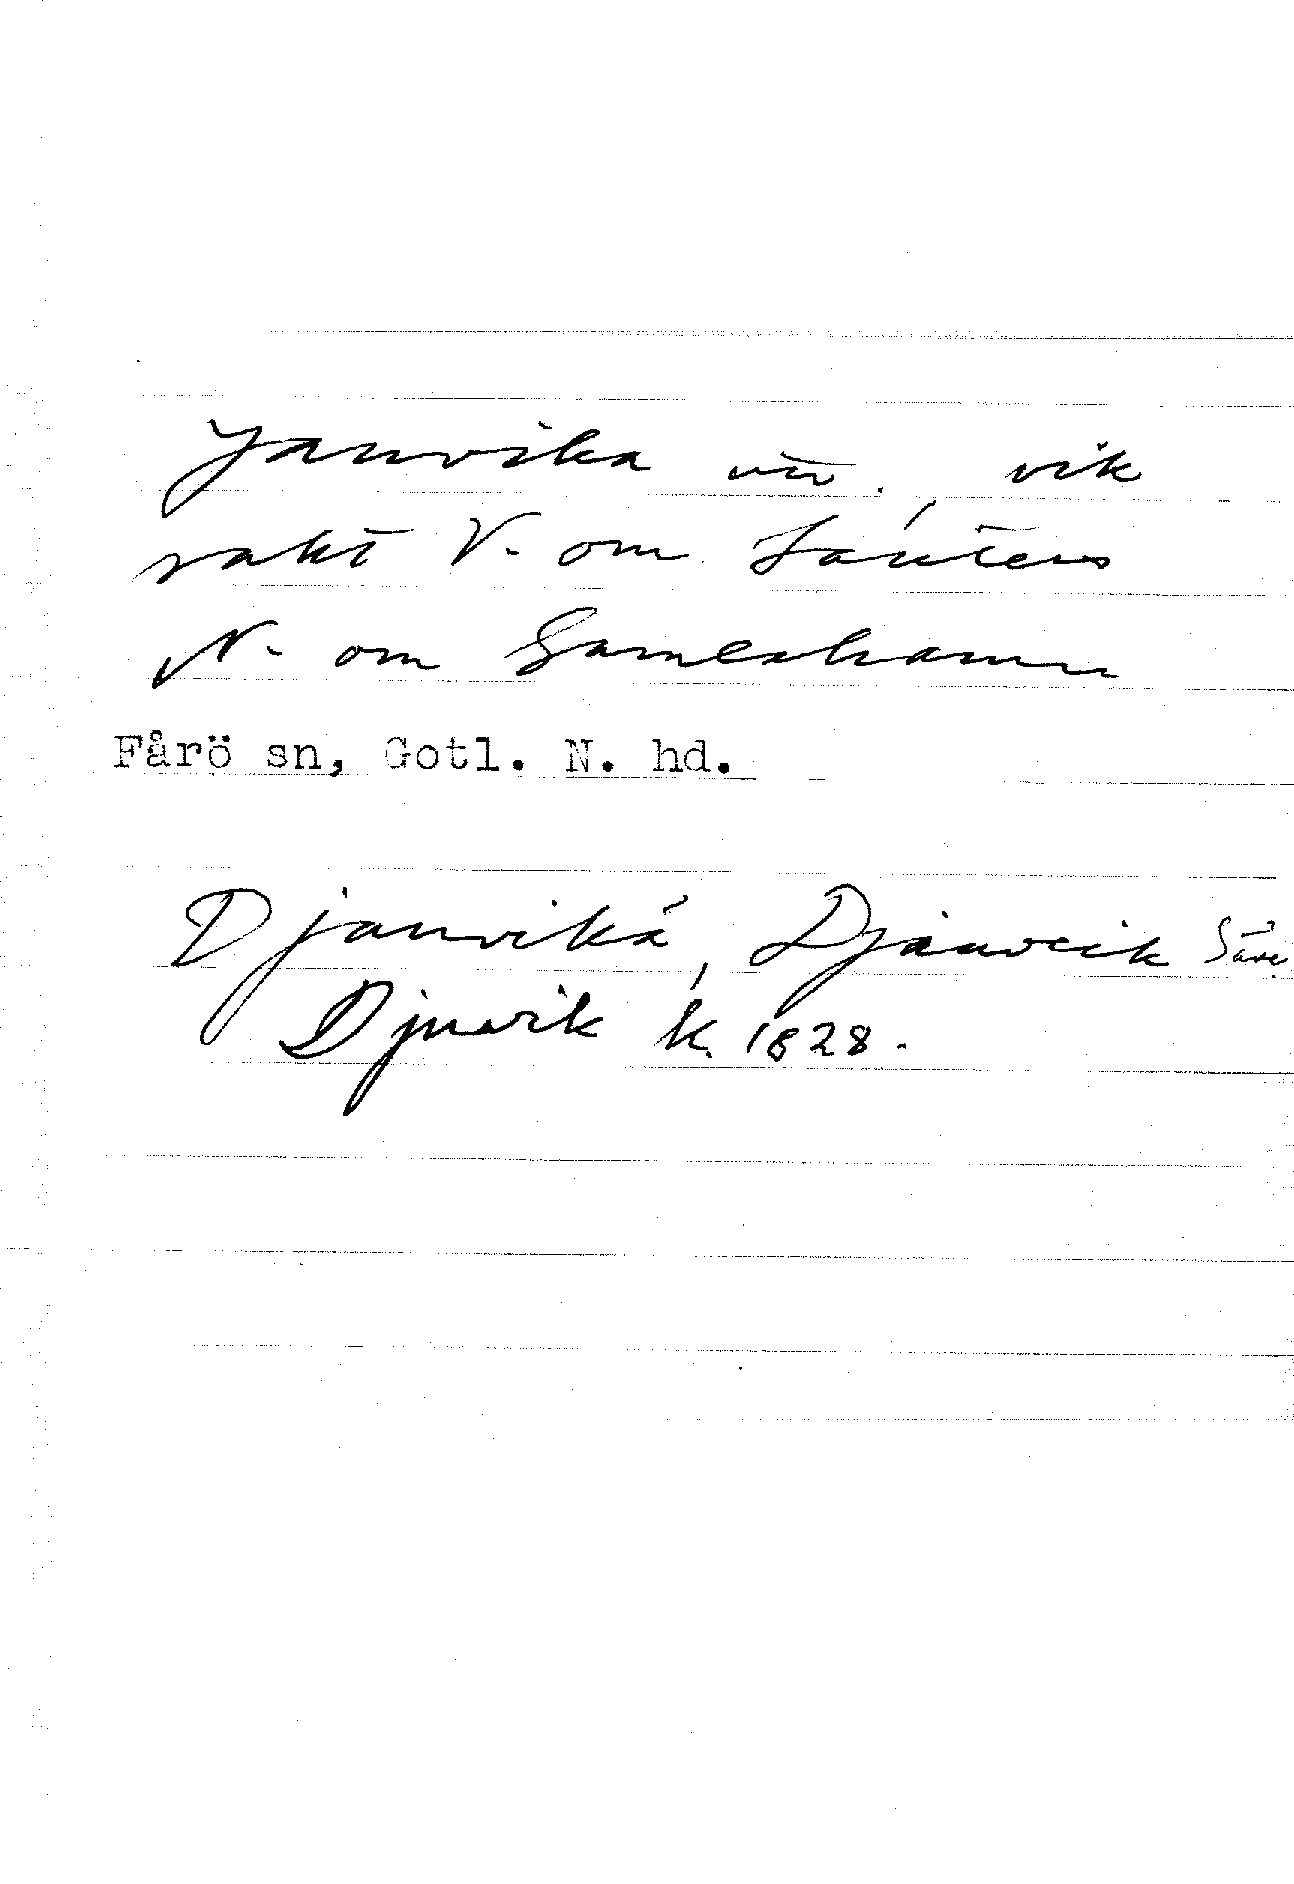 Janvika vik
rakt V. om Lauters
N. om Gamleshamn
Fårö sn, Gotl. N. hd.
Djauvikä, Djäuveik Säve
Djuvik k. 1828.